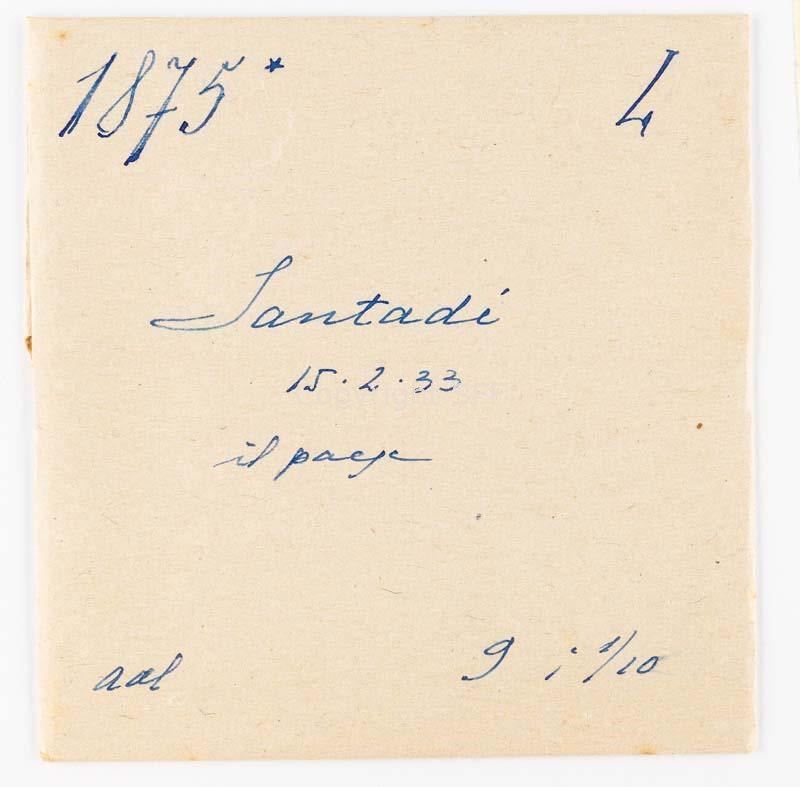 1875* 4
Santadi
15.2.33
il paese
aal
9 i 1/10